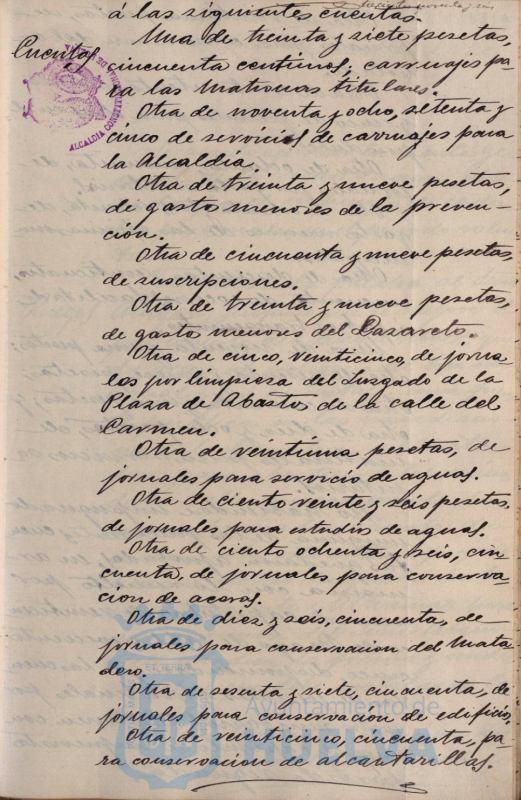 á las siguientes cuentas.
Cuentas
Una de treinta y siete pesetas,
cincuenta centimos; carruajes pa-
ra las Matronas titulares.
Otra de noventa y ocho, setenta y
cinco de servicios de carruajes para
la Alcaldia.
Otra de treinta y nueve pesetas,
de gastos menores de la preven-
ción.
Otra de cincuenta y nueve pesetas
de suscripciones.
Otra de treinta y nueve pesetas,
de gastos menores del Lazareto.
Otra de cinco, veinticinco, de jorna-
les por limpieza del Juzgado de la
Plaza de Abastos de la calle del
Carmen.
Otra de veintiuna pesetas, de
jornales para servicio de aguas.
Otra de ciento veinte y seis pesetas,
de jornales para estudios de aguas.
Otra de ciento ochenta y seis, cin-
cuenta, de jornales para conserva-
cion de aceras.
Otra de diez y seis, cincuenta, de
jornales para conservacion del Mata
dero.
Otra de sesenta y siete, cincuenta, de
jornales para conservacion de edificio,
Otra de veinticinco, cincuenta, pa-
ra conservacion de alcantarillas.
ALCALDIA CONSTITU
ET TERRÆ
Ayuntamiento de
HUELVA